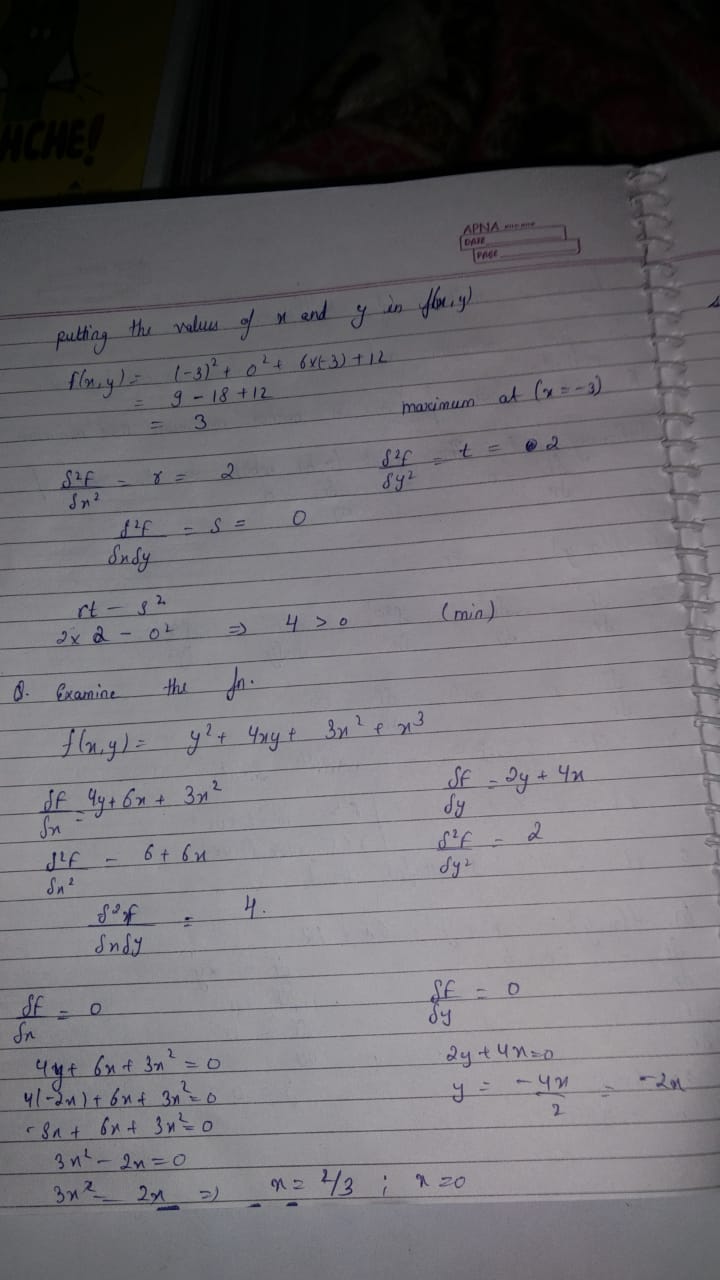 HCHE!
APNA
DATE
PAGE
putting the values of x and y in f(x,y)
f(x,y) = (-3)² + 0² + 6x(-3) + 12
= 9 - 18 + 12
= 3
maximum at (x = -3)
δ²f/δx² = r = 2
δ²f/δy² = t = 2
δ²f/δxδy = s = 0
rt - s²
2x2 - 0² ⇒ 4 > 0 (min)
Q. Examine the fn.
f(x,y) = y² + 4xy + 3x² + x³
δf/δx = 4y + 6x + 3x²
δf/δy = 2y + 4x
δ²f/δx² = 6 + 6x
δ²f/δy² = 2
δ²f/δxδy = 4.
δf/δx = 0
δf/δy = 0
4y + 6x + 3x² = 0
2y + 4x = 0
4(-2x) + 6x + 3x² = 0
y = -4x/2 = -2x
-8x + 6x + 3x² = 0
3x² - 2x = 0
3x² = 2x ⇒ x = 2/3 ; x = 0